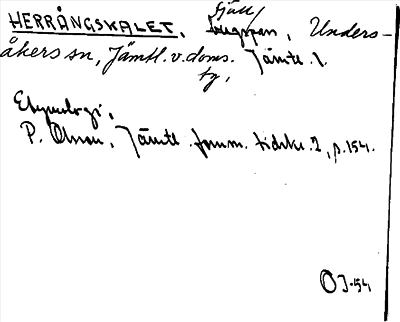 fjäll
HERRÅNGSKALET, bergspass, Unders-
åkers sn, Jämtl. v. doms. Jämtl. l.
tg,
Etymologi,
P. Olsson, Jämtl. fornm. tidskr. 2, p. 154.
OJ-54